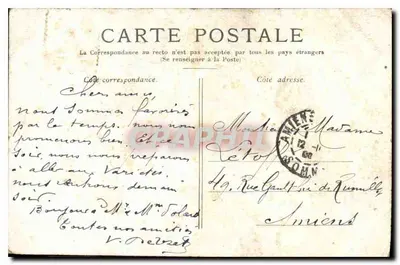 CARTE POSTALE
La Correspondance au recto n'est pas acceptée par tous les pays étrangers
(Se renseigner à la Poste)
Côté correspondance.
Côté adresse.
Chers amis
nous sommes favorisés
par le temps. nous nous
promenons bien. et ce
soir, nous nous préparons
à aller aux Variétés.
nous rentrons demain
soir.
Bonjour à Mr & Mme
toutes nos amitiés
V.
Monsieur Madame
49, Rue Gaulthier de Rumilly
Amiens
AMIENS
SOMME
CARTHAGE